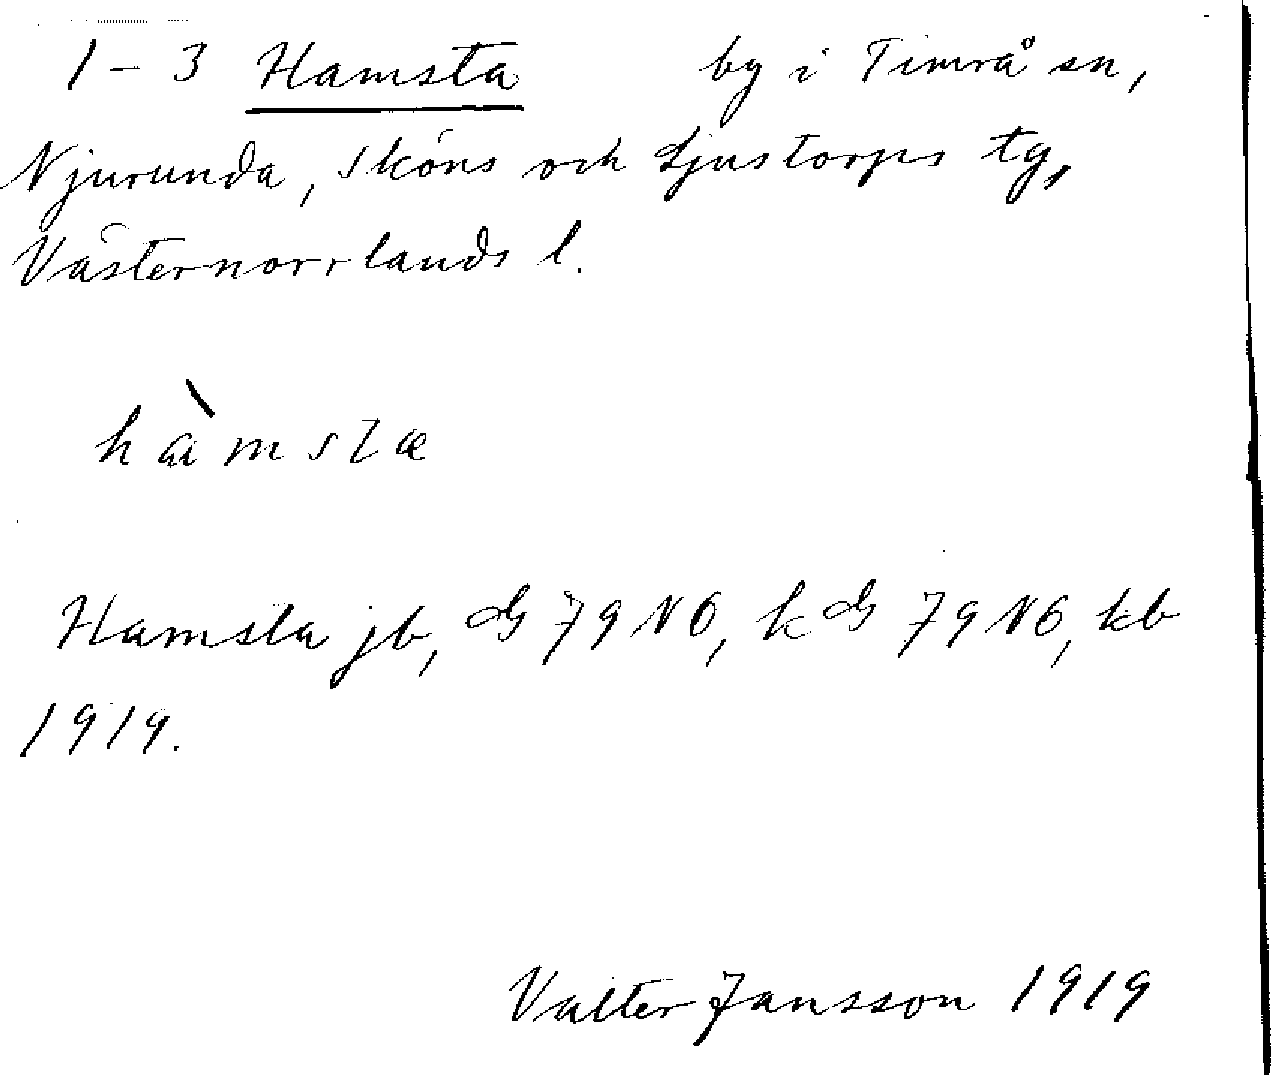 1-3 Hamsta by i Timrå sn,
Njurunda, Sköns och Ljustorps tg,
Västernorrlands l.
hàmsta
Hamsta jb, G 79 NO, kG 79 NO, kb
1919.
Valter Jansson 1919